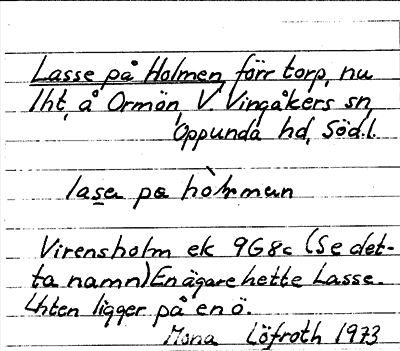 Lasse på Holmen, förr torp, nu
lht, å Ormön, V. Vingåkers sn,
Oppunda hd, Södl.
lasa pa hòlmen
Virensholm ek 9G8c (Se det-
ta namn) En ägare hette Lasse.
Lhten ligger på en ö.
Mona Löfroth 1973